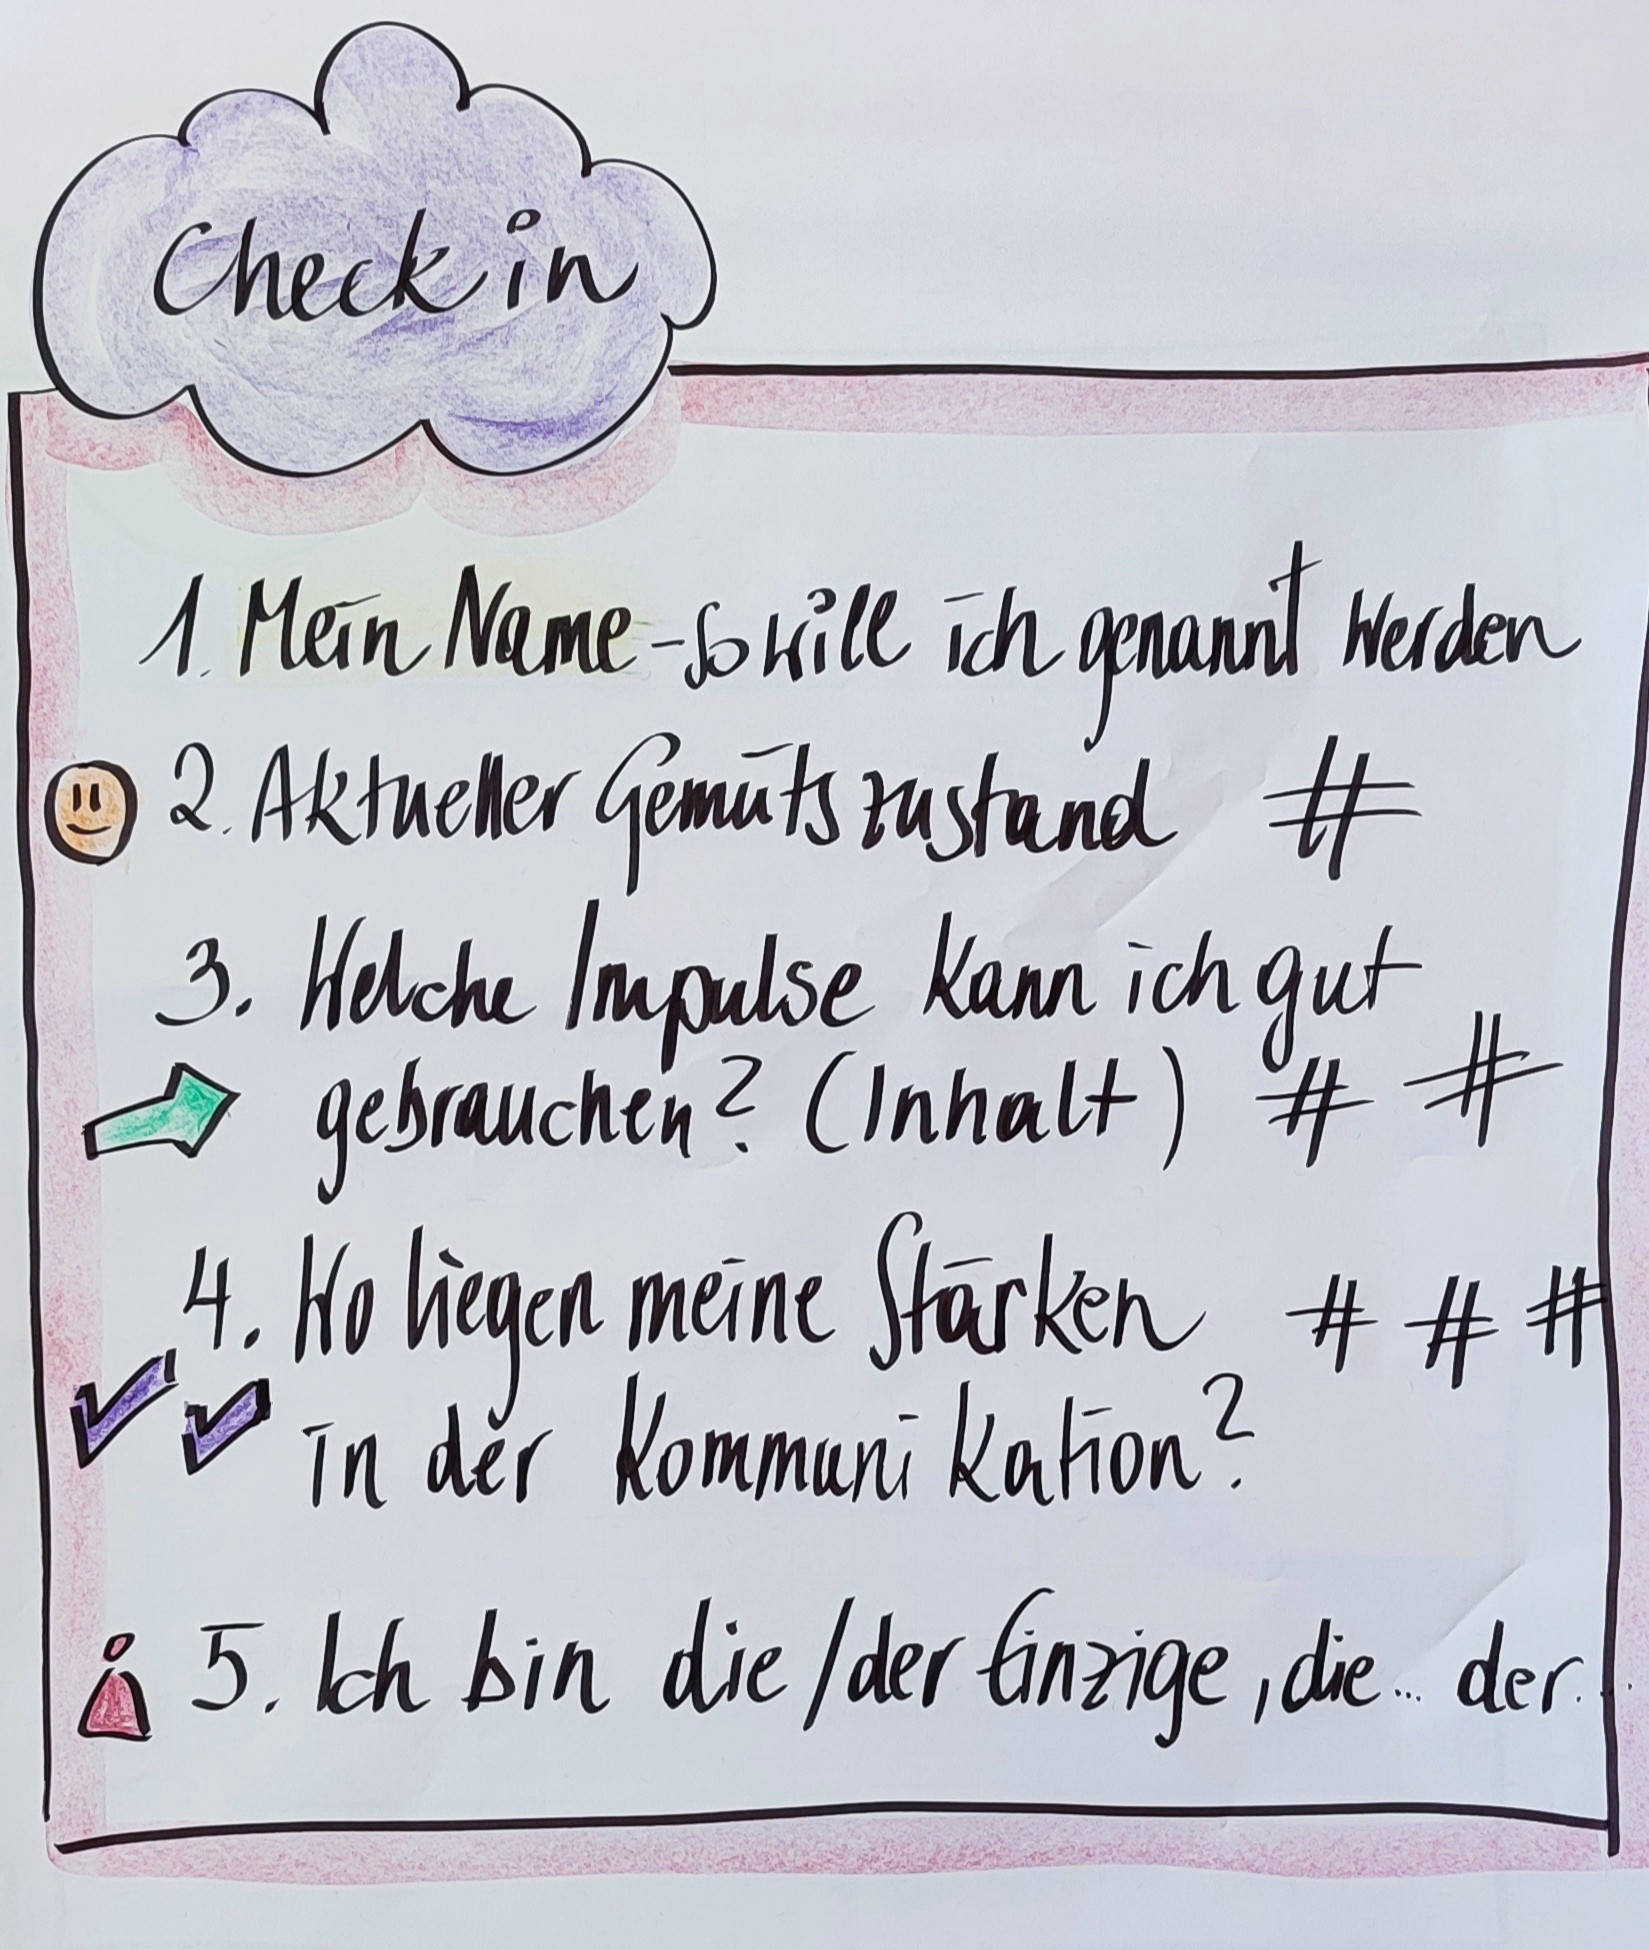 Check in
1. Mein Name - So will ich genannt werden
2. Aktueller Gemütszustand #
3. Welche Impulse kann ich gut
gebrauchen? (Inhalt) # #
4. Wo liegen meine Stärken # # #
in der Kommunikation?
5. Ich bin die/der Einzige, die... der...